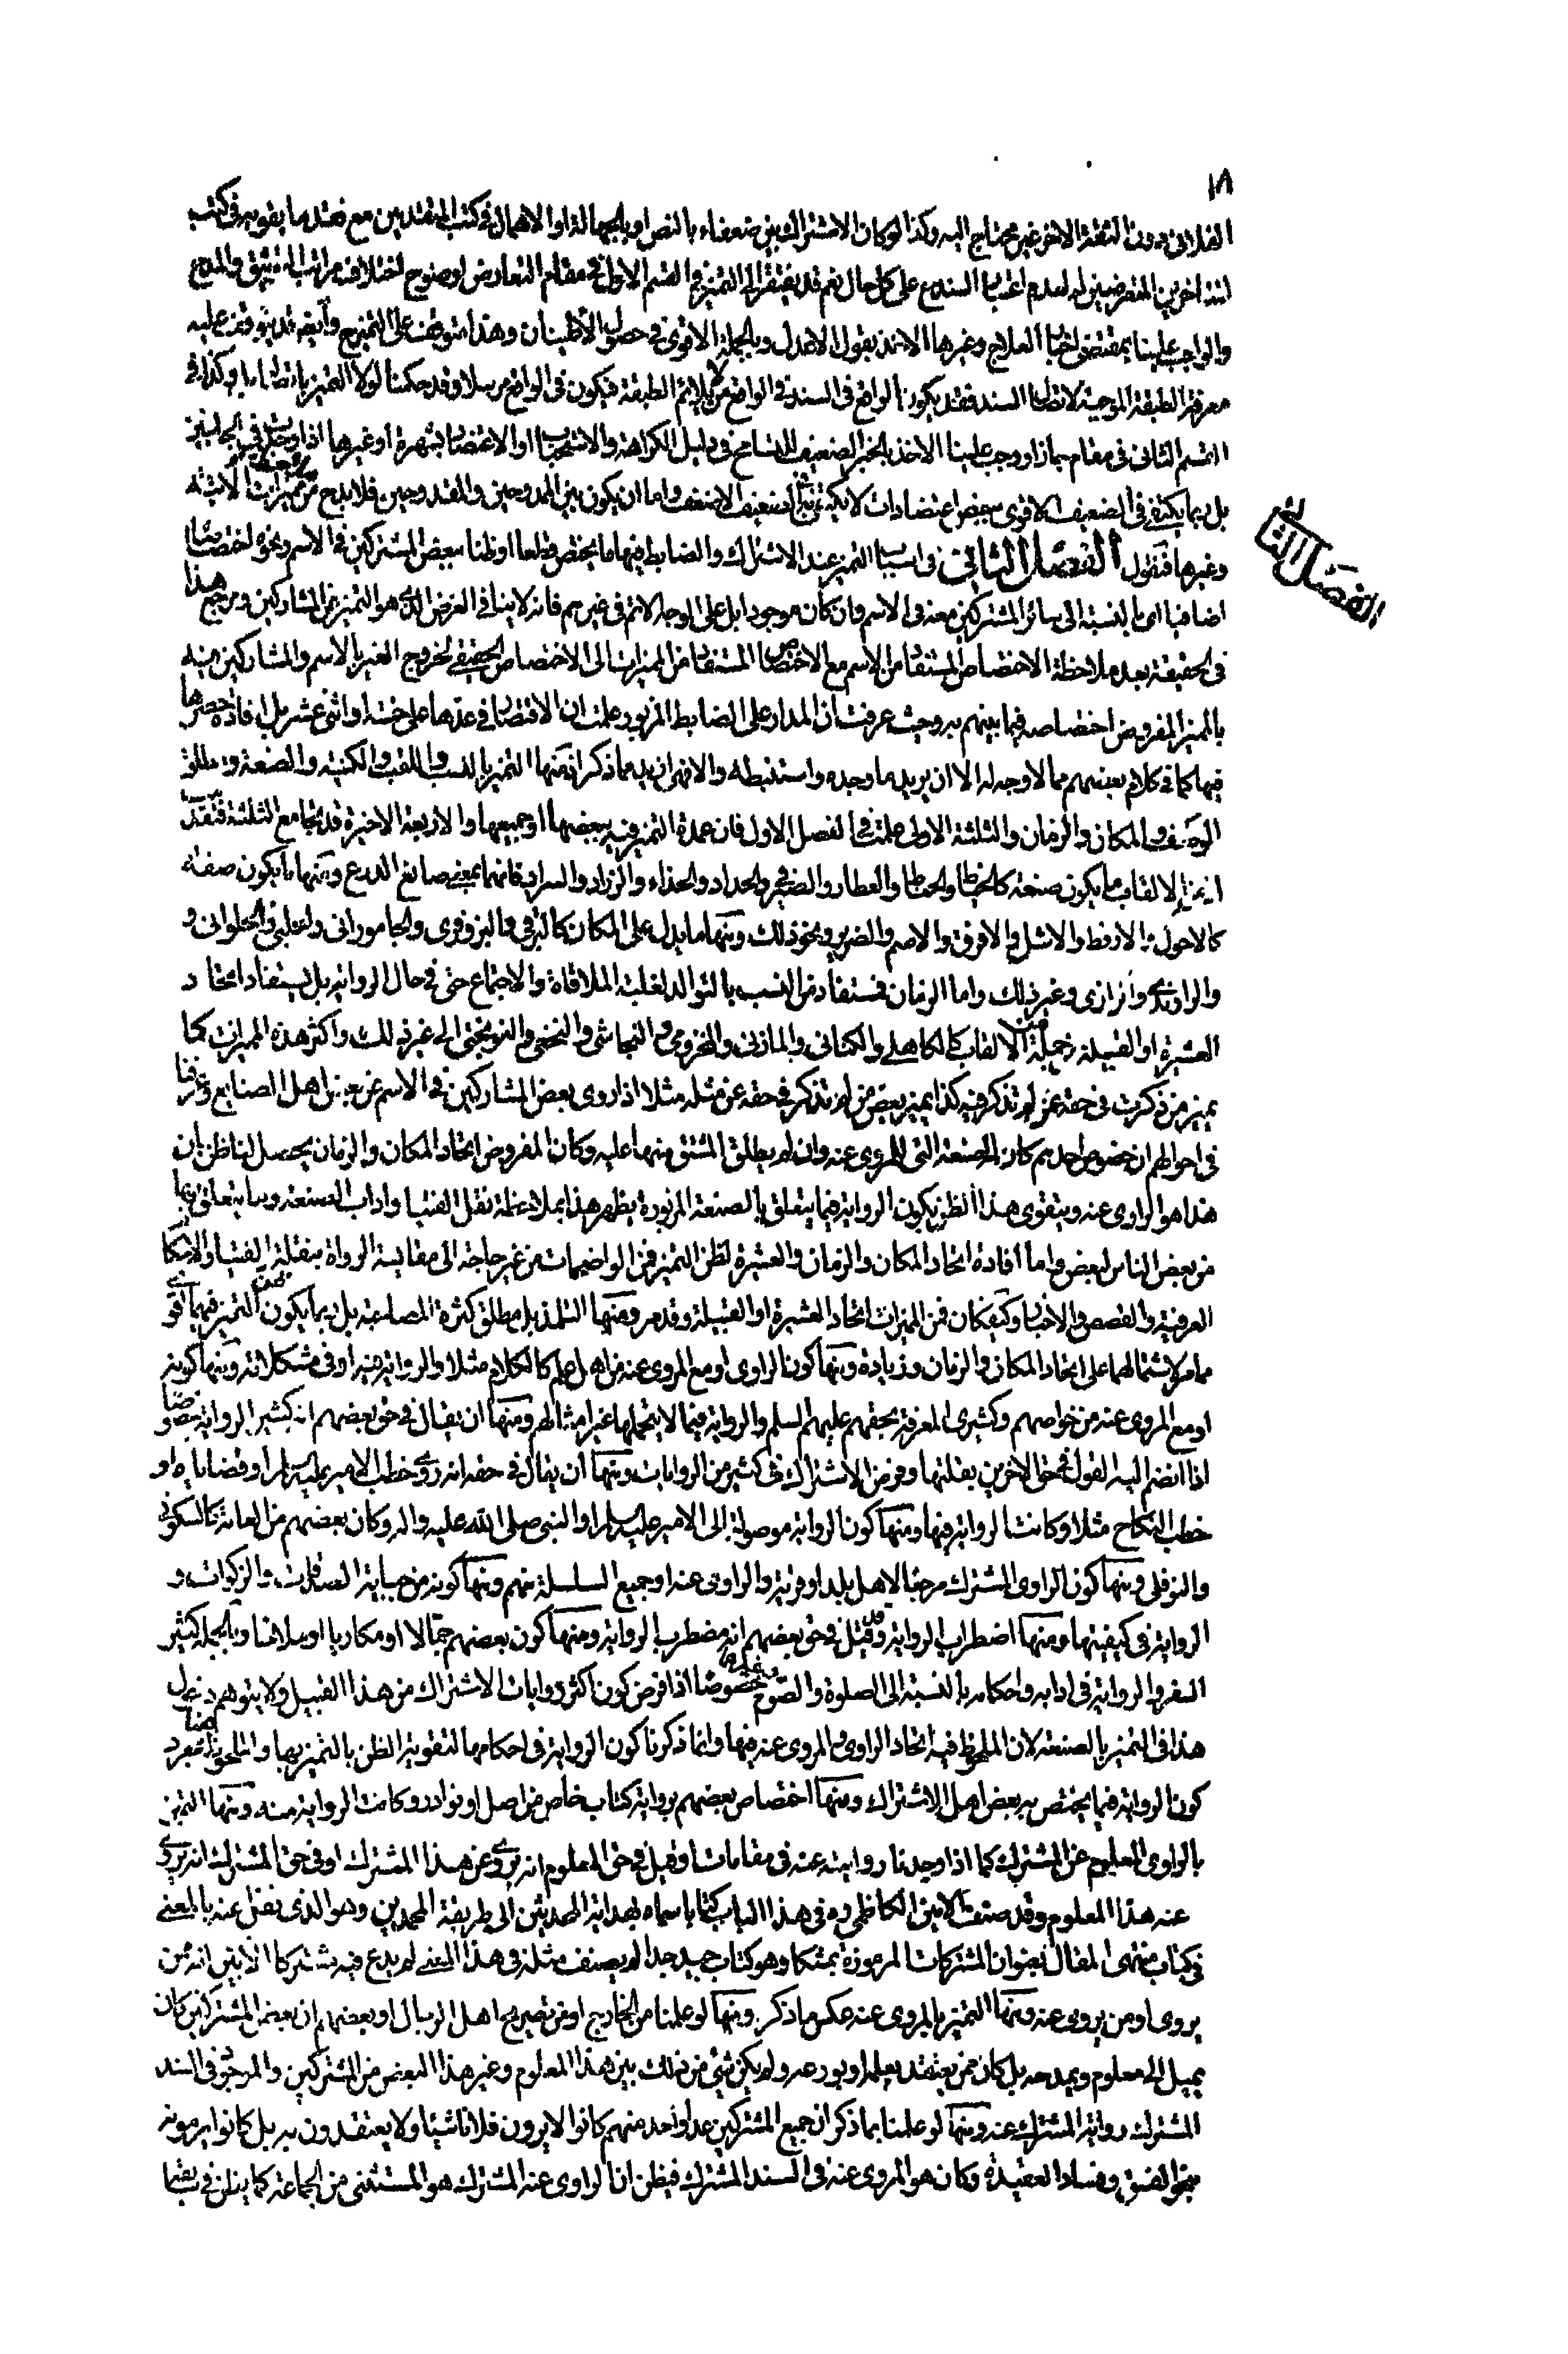 ١٨
الفلاني دون الثقة الاخر غير محتاج اليه وكذا لو كان الاشتراك بين ضعفاء بالنص او بالجهالة او الاهمال في كتب المتقدمين مع فقد ما يقويه في كتب
اخرين لعدم اعتبار السند على كل حال نعم قد يفتقر الى التميز في القسم الاول في مقام التعارض لوضوح اختلاف مراتب التوثيق والمدح
والواجب علينا بمقتضى اخبار العلاج وغيرها الاخذ بقول الاعدل وبالجملة الاقوى في حصول الاطمينان وهذا متوقف على التميز وايضا قد يتوقف عليه
معرفة الطبقة الموجبة لاتصال السند فقد يكون الواقع في السند في الواقع من لا يلائم الطبقة فيكون في الواقع مرسلا وقد حكمنا لولا التميز باتصاله وكذا في
القسم الثاني في مقام جاز او وجب علينا الاخذ بالخبر الضعيف للتسامح في دليل الكراهة والاستحباب او الاعتضاد بشهرة او غيرها اذا
بل ربما يكتفى في الضعيف الاقوى ببعض اعتضادات لا يكتفى به في الضعيف الاضعف واما ان يكون بين الممدوحين والمقدوحين فلا بد من مميزات
وغيرها فنقول الفصل الثاني في اسباب التميز عند الاشتراك والضابط فيها ما يختص قطعا او ظنا ببعض المشتركين في الاسم ونحوه اختصاصا
اضافيا اي بالنسبة الى سائر المشتركين معه في الاسم وان كان موجودا بل على الوجه الاتم في غيرهم فانه لا ينافي الغرض الذي هو التميز عن المشاركين ومرجع هذا
في الحقيقة بعد ملاحظة الاختصاص المستفاد من الاسم مع الاختصاص المستفاد من المميزات الى الاختصاص الحقيقي لخروج الغير بالاسم والمشاركين فيه
بالمميز المفروض اختصاصه فيما بينهم به وحيث عرفت ان المدار على الضابط المزبور علمت ان الاقتصار في عدها على خمسة او اثنى عشر بل افادة حصرها
فيها كما في كلام بعضهم مما لا وجه له الا ان يريد ما وجده واستنبطه والا فهي ازيد مما ذكر فمنها التميز بالنسب واللقب والكنية والصنعة ومطلق
الوصف والمكان والزمان والثلثة الاولى علمت في الفصل الاول فان عمدة التميز فيه ببعضها او جميعها والاربعة الاخيرة قد تجامع الثلثة
اذ من الالقاب ما يكون صنعة كالخياط والحناط والعطار والحداد والحذاء والزراد والسراد فانهما بمعنى صانع الدرع ومنها ما يكون صفة
كالاحول والارقط والاشل والافرق والاصم والضرير ونحو ذلك ومنها ما يدل على المكان كالبرقي والبزوفري والجاموراني والحلواني و
والراوندي والرازي وغير ذلك واما الزمان فيستفاد من النسب بالتوالد لغلبة الملاقاة والاجتماع حتى في حال الرواية بل يستفاد اتحاد
العشيرة او القبيلة من جملة الالقاب كالكاهلي والكناني والمازني والمخزومي والنجاشي والنخعي والنوبختي الى غير ذلك واكثر هذه المميزات كما
يميز من ذكرت في حقه عن من لم تذكر فيه كذا يميز بعض من لم تذكر في حقه عن مثله مثلا اذا روى بعض المشاركين في الاسم عن بعض اهل الصنايع وعرفنا
في احوالهم ان خصوص احدهم كان له الصنعة التي للمروي عنه وان لم يطلق المشتق منها عليه وكان المفروض اتحاد المكان والزمان يحصل لنا ظن بان
هذا هو الراوي عنه ويتقوى هذا الظن بكون الرواية فيما يتعلق بالصنعة المزبورة يظهر هذا بملاحظة نقل الفتيا واداب الصنعة وما يتعلق بها
من بعض الناس لبعض واما افادة اتحاد المكان والزمان والعشيرة لظن التميز فمن الواضحات من غير حاجة الى مقايسة الرواة بنقلة الفتيا والاحكام
العرفية والقصص والاخبار وكيف كان فمن المميزات اتحاد العشيرة او القبيلة وقد مر ومنها التلمذ بل مطلق كثرة المصاحبة بل ربما يكون ظن التميز فيهما اقوى
مما مر لاشتمالهما على اتحاد المكان والزمان وزيادة ومنها كون الراوي او مع المروي عنه من اهل علم كالكلام مثلا والرواية فيه او في مشكلاته ومنها كونه
او مع المروي عنه من خواصهم وكثيري المعرفة بحقهم عليهم السلم والرواية فيما لا يتحملها غير امثالهم ومنها ان يقال في حق بعضهم انه كثير الرواية خصوصا
اذا انضم اليه القول في حق الاخرين بقلتها وفرض الاشتراك في كثير من الروايات ومنها ان يقال في حقه انه روى خطب الامير عليه السلم او قضاياه او
خطب النكاح مثلا وكانت الرواية فيها ومنها كون الرواية موصولة الى الامير عليه السلم او النبي صلى الله عليه واله وكان بعضهم من العامة كالسكوني
والنوفلي ومنها كون الراوي المشترك مرجعا لاهل بلد او قرية والراوي عنه او جميع السلسلة منهم ومنها كونه من جباية الصدقات والزكوات و
الرواية في كيفيتها ومنها اضطراب الرواية وقد قيل في حق بعضهم انه مضطرب الرواية ومنها كون بعضهم جمالا او مكاريا او ملاحا وبالجملة كثير
السفر والرواية في ادابه واحكامه بالنسبة الى الصلوة والصوم وغيرهما خصوصا اذا فرض كون اكثر روايات الاشتراك من هذا القبيل ولا يتوهم دخول
هذا في التميز بالصنعة لان الملحوظ فيه اتحاد الراوي والمروي عنه فيها وانما ذكرنا كون الرواية في احكامها لتقوية الظن بالتميز بها والملحوظ هنا مجرد
كون الرواية فيما يختص به بعض اهل الاشتراك ومنها اختصاص بعضهم برواية كتاب خاص من اصل او نوادر وكانت الرواية منه ومنها التميز
بالراوي المعلوم عن المشترك كما اذا وجدنا روايته عنه في مقامات او قيل في حق المعلوم انه يروي عن هذا المشترك او في حق المشترك انه يروي
عنه هذا المعلوم وقد صنف الامين الكاظمي ره في هذا الباب كتابا سماه بهداية المحدثين الى طريقة المحمدين وهو الذي ينقل عنه بالمعنى
في كتاب منتهى المقال بعنوان المشتركات المرموزة بمشكا وهو كتاب جيد جدا لم يصنف مثله في هذا المعنى لم يدع فيه مشتركا الا بين انه عمن
يروي او من يروي عنه ومنها التميز بالمروي عنه عكس ما ذكر ومنها لو علمنا من الخارج او من تصريح اهل الرجال او بعضهم ان بعض المشتركين كان
يميل الى معلوم ويمدحه بل كان ممن يعتقد بعلمه او بورعه ولم يكن شيء من ذلك بين هذا المعلوم وغير هذا البعض من المشتركين والموجود في السند
المشترك رواية المشترك عنه ومنها لو علمنا بما ذكر ان جميع المشتركين عدا واحد منهم كانوا لا يرون فلانا شيئا ولا يعتقدون به بل كانوا يرمونه
بنحو الفسق وفساد العقيدة وكان هو المروي عنه في السند المشترك فيظن ان الراوي عنه المشترك هو المستثنى من الجماعة كما يظن في
الفصل الثا